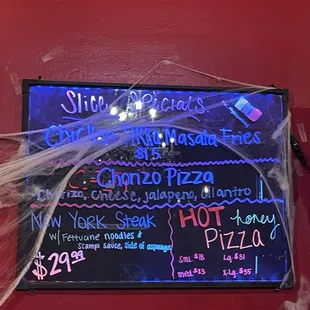 Slice Specials
Chicken Tikka Masala Fries
$15
Chorizo Pizza
Chorizo, cheese, jalapeño, cilantro
New York Steak
w/ Fettucine noodles &
Scampi sauce, side of asparagus
$29.99
HOT honey
Pizza
SML $18 Lg. $31
med $23 X-Lg. $35